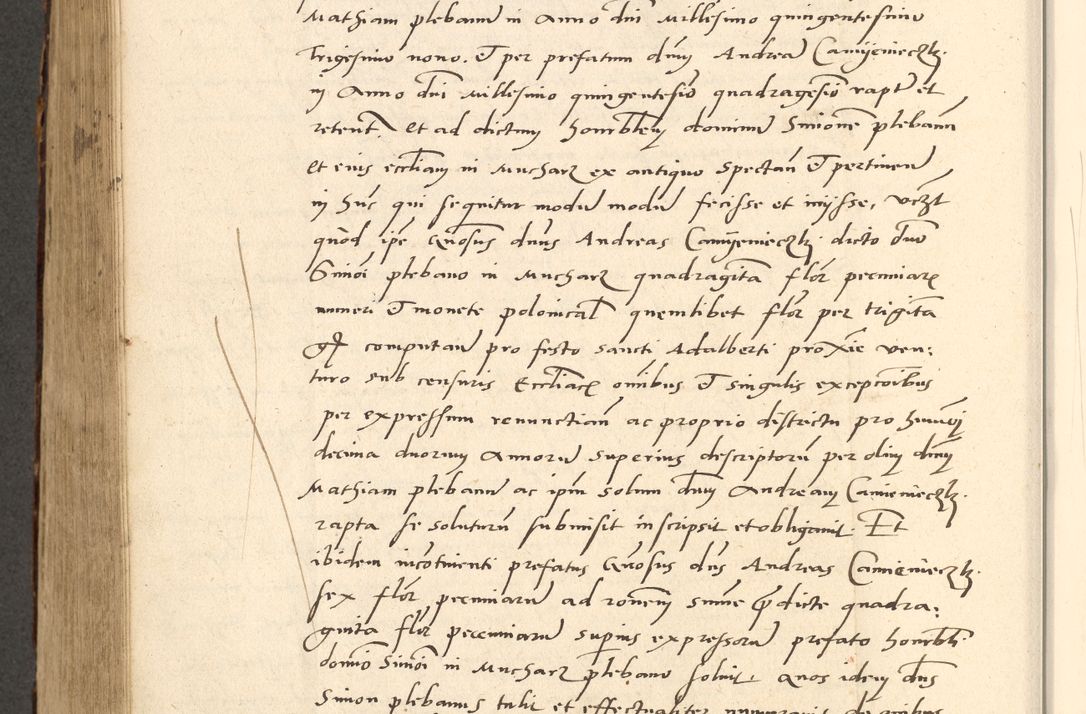 Mathiam plebanũ in Anno dñi Millesimo quingentesimo
Trigesimo nono. et per prefatum dñm Andreã Camyenieczky.
in Anno dñi Millesimo quingentesio quadragesio rapt. et
retent. Et ad dictum honorblem dominũ Simonẽ plebanũ
et eius eccliam in Mucharz ex antiquo spectañ et pertineñ
in huc qui sequitur modũ modũ fecisse et inijsse, vczt
quod ipe Gñosus dñus Andreas Camyenieczky. dicto dño
Simoi plebano in Mucharz quadraginta flor pecuniar
numeri et monete polonical quemlibet flor per triginta
gr computañ pro festo sancti Adalberti proxie ven:
turo sub censuris Eccliac omnibus et singulis excepcoibus
per expressum renunctiañ ac proprio districtu pro huiusmodi
decima duorum Annorũ superius descriptorũ per olim dñm
Mathiam plebanũ ac ipm solum dñm Andream Camienieczky.
rapta se soluturũ submisit inscripsit et obligauit. Et
ibidem incotinenti prefatus Gñosus dñs Andreas Camienieczky.
sex flor pecuniarũ ad ronem sume predicte quadra:
ginta flor pecuniarũ supius expressorũ prefato honorbli
domio Simoi in Mucharz plebano soluit. Quos idem dñs
Simon plebanus tulit et effectualiter numerauit de quibus